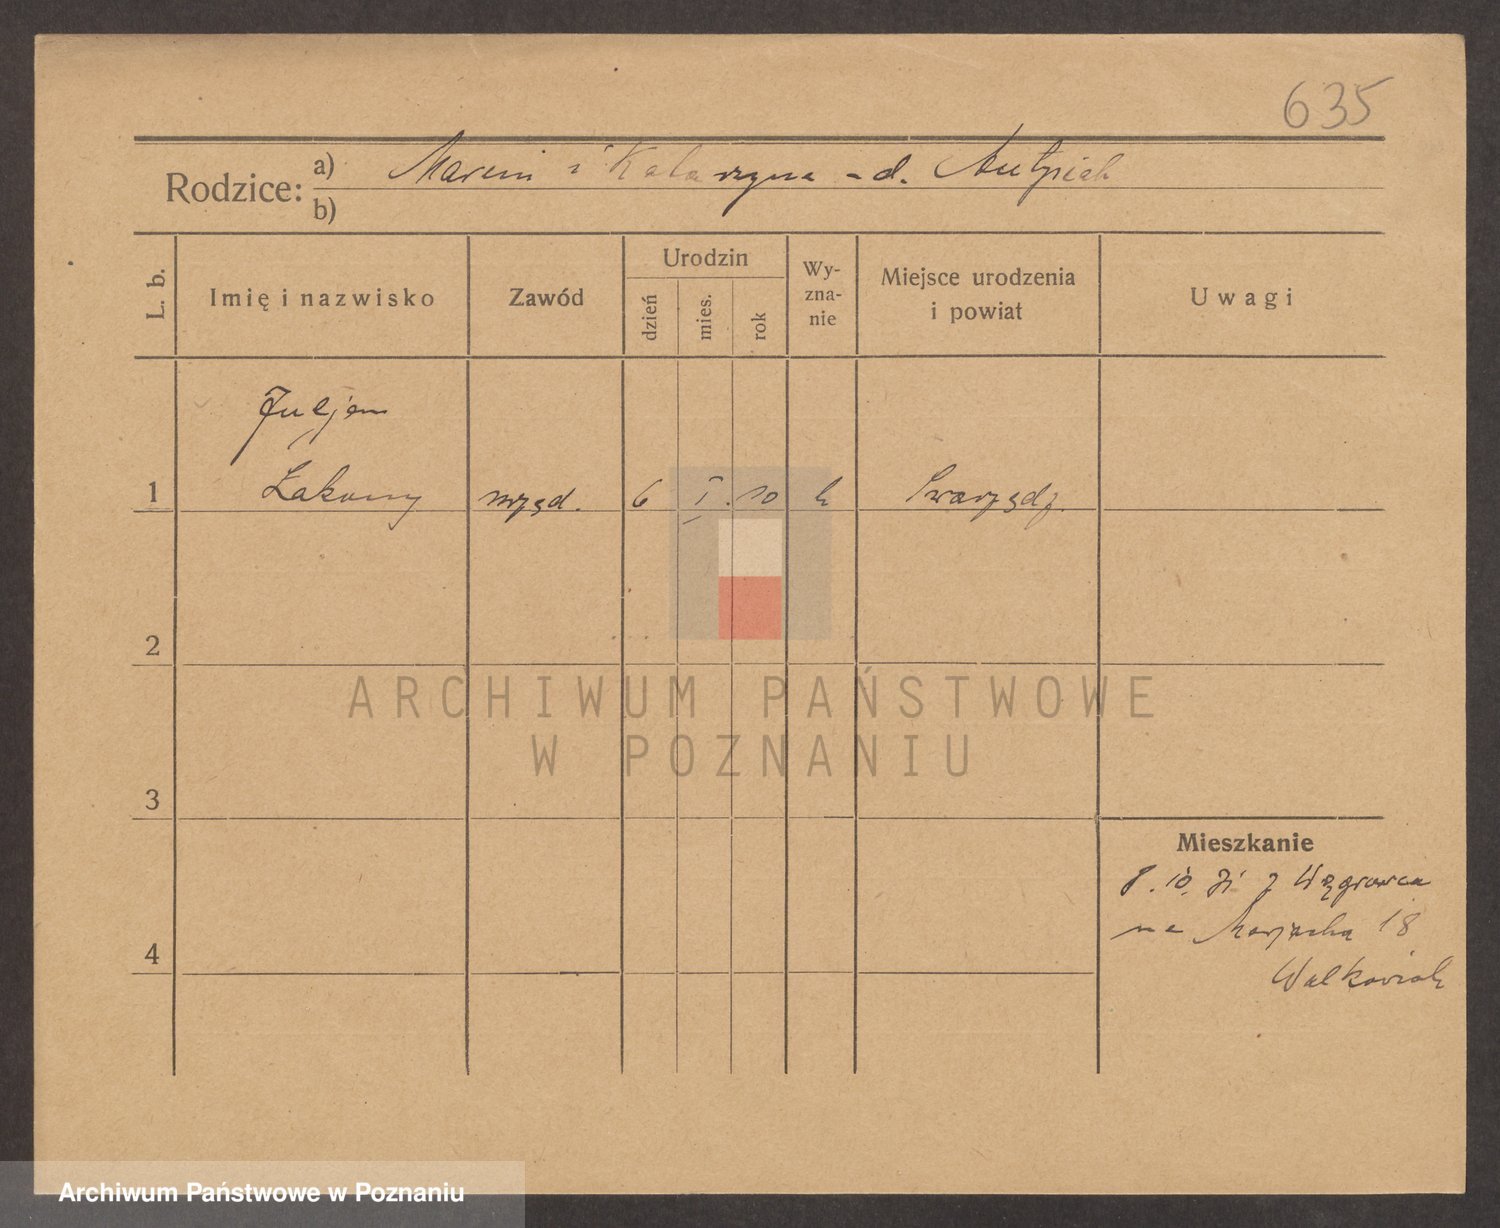 635
Rodzice: a) Marcin i Katarzyna - d.
b)
L. b.
Imię i nazwisko
Zawód
Urodzin
dzień
mies.
rok
Wy-
zna-
nie
Miejsce urodzenia
i powiat
Uwagi
Juljan
1 Łakomy urzęd. 6 I. 10 k Swarzędz.
2
3
4
Mieszkanie
8. 10. z Wągrowca
na 18
Walkowiak
ARCHIWUM PAŃSTWOWE
W POZNANIU
Archiwum Państwowe w Poznaniu